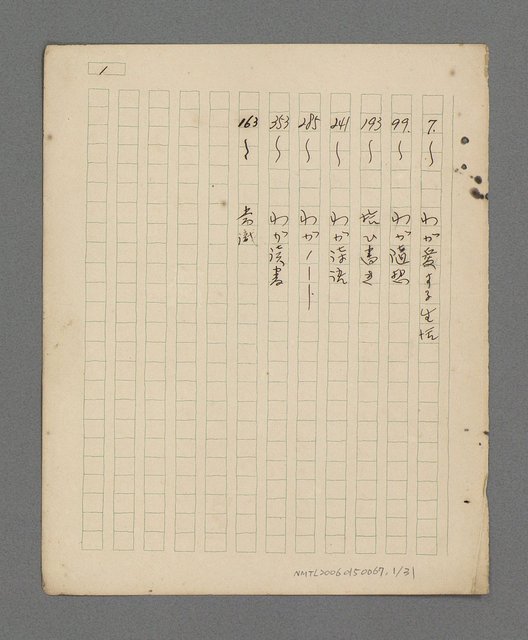 1
7.〜 わが愛する生活
99.〜 わが随想
193〜 拾ひ書き
241〜 わが浮流
285〜 わがノート
353〜 わが読書
163〜 常識
NMTL20060150067, 1/31